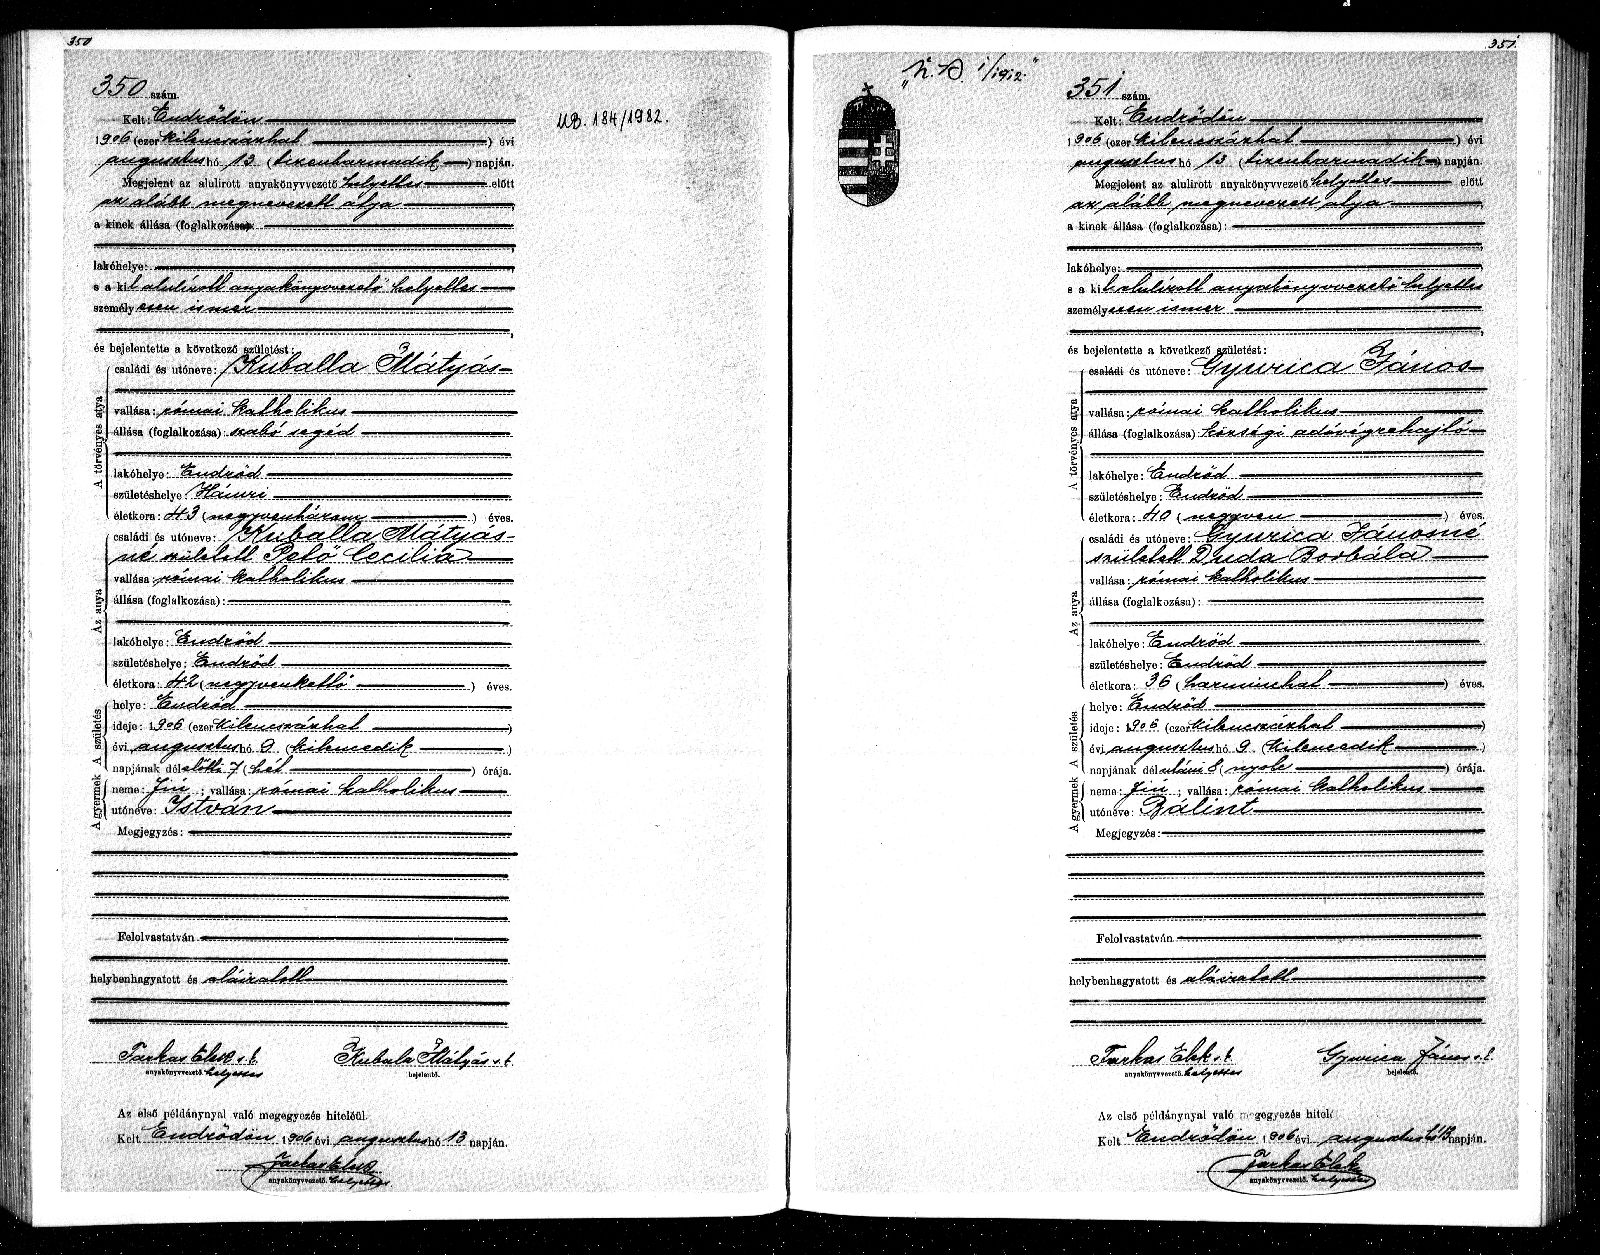 350
350 szám.
UB. 184/1982.
Kelt: Endrődön
1906 (ezer kilencszázhat ) évi
augusztus hó 13 (tizenharmadik ) napján.
Megjelent az alulirott anyakönyvvezető helyettes előtt
az alább megnevezett atya
a kinek állása (foglalkozása):
lakóhelye:
s a kit alulirott anyakönyvvezető helyettes
személyesen ismer
és bejelentette a következő születést:
A törvényes atya
családi és utóneve: Kuballa Mátyás
vallása: római katholikus
állása (foglalkozása): szabó segéd
lakóhelye: Endrőd
születéshelye:
életkora: 43 (negyvenhárom ) éves.
Az anya
családi és utóneve: Kuballa Mátyás-
né született Pető Cecilia
vallása: római katholikus
állása (foglalkozása):
lakóhelye: Endrőd
születéshelye: Endrőd
életkora: 42 (negyvenkettő ) éves.
A születés
helye: Endrőd
ideje: 1906 (ezer kilencszázhat )
évi augusztus hó 9 (kilencedik )
napjának délelőtti 7 (hét ) órája.
A gyermek
neme: fiú ; vallása: római katholikus
utóneve: István
Megjegyzés:
Felolvastatván
helybenhagyatott és aláiratott
Farkas Elek s. k. Kubala Mátyás s. k.
anyakönyvvezető. helyettes bejelentő.
Az első példánynyal való megegyezés hiteléül.
Kelt Endrődön 1906 évi augusztus hó 13 napján.
Farkas Elek
anyakönyvvezető. helyettes
351
1/1912."
351 szám.
Kelt: Endrődön
1906 (ezer kilencszázhat ) évi
augusztus hó 13 (tizenharmadik ) napján.
Megjelent az alulirott anyakönyvvezető helyettes előtt
az alább megnevezett atya
a kinek állása (foglalkozása):
lakóhelye:
s a kit alulirott anyakönyvvezető helyettes
személyesen ismer
és bejelentette a következő születést:
A törvényes atya
családi és utóneve: Gyurica János
vallása: római katholikus
állása (foglalkozása) községi adóvégrehajtó
lakóhelye: Endrőd
születéshelye: Endrőd
életkora: 40 (negyven ) éves.
Az anya
családi és utóneve: Gyurica Jánosné
született Duda Borbála
vallása: római katholikus
állása (foglalkozása):
lakóhelye: Endrőd
születéshelye: Endrőd
életkora: 36 (harminchat ) éves.
A születés
helye: Endrőd
ideje: 1906 (ezer kilencszázhat )
évi augusztus hó 9 (kilencedik )
napjának délutáni 8 (nyolc ) órája.
A gyermek
neme: fiú ; vallása: római katholikus
utóneve: Bálint
Megjegyzés:
Felolvastatván
helybenhagyatott és aláiratott
Farkas Elek s. k. Gyurica János s. k.
anyakönyvvezető. helyettes bejelentő.
Az első példánynyal való megegyezés hitelé
Kelt Endrődön 1906 évi augusztus hó 13 napján.
Farkas Elek
anyakönyvvezető. helyettes